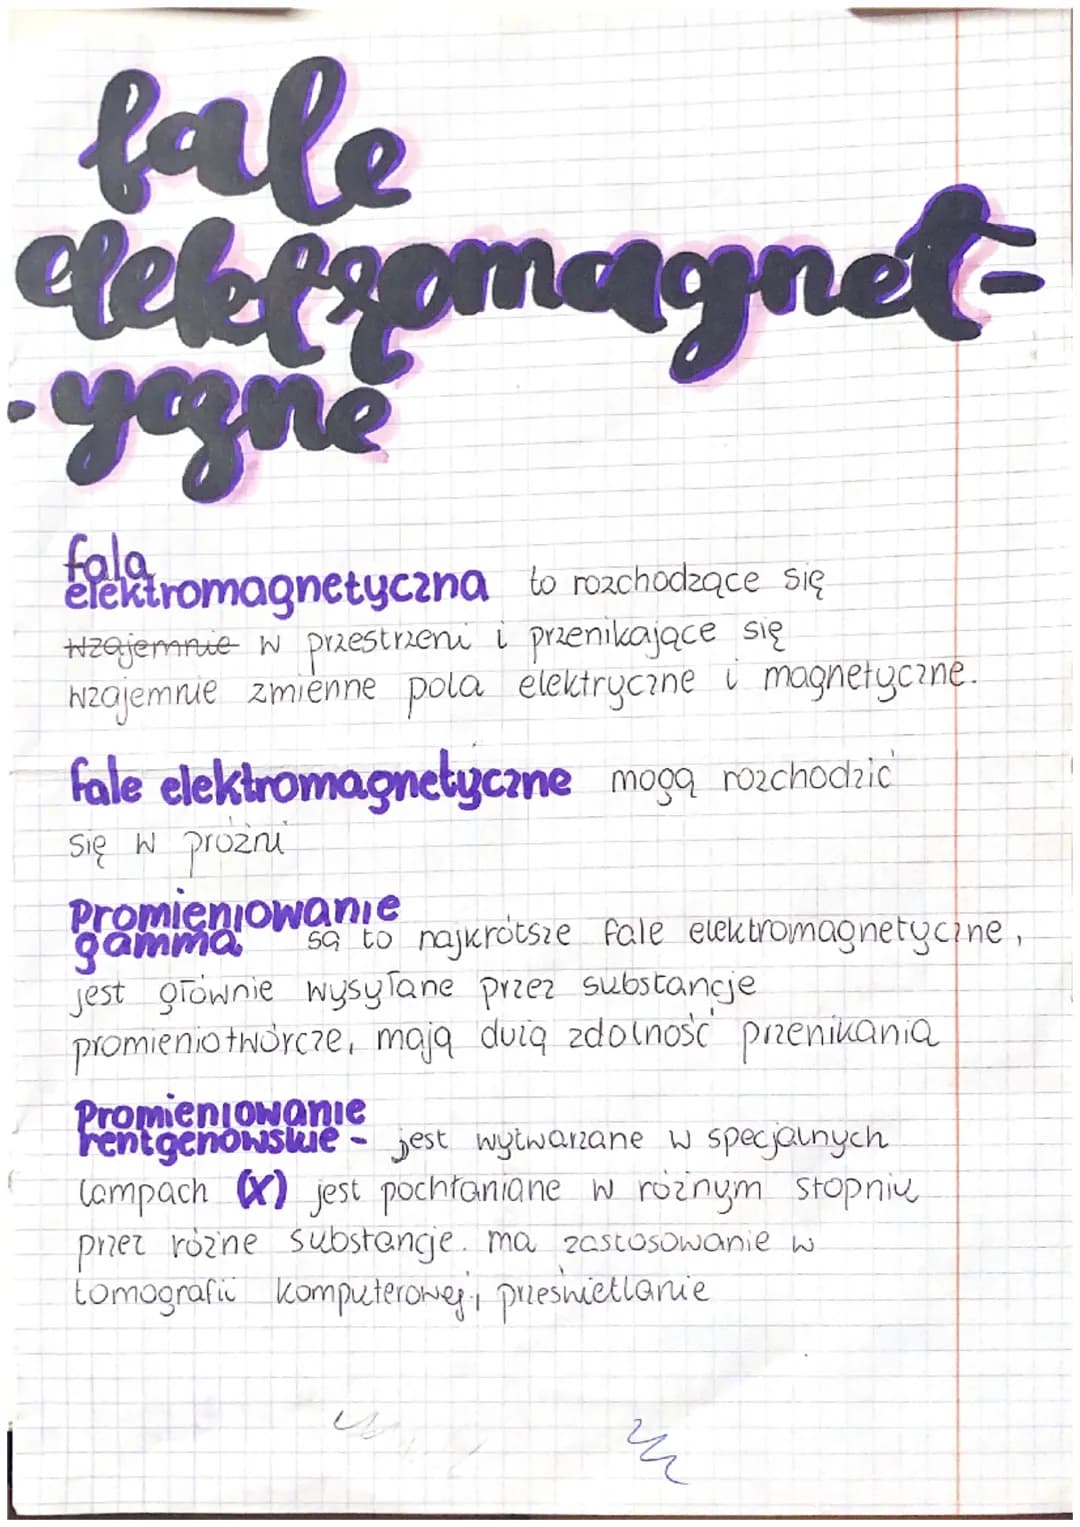 fale
elektromagnet-
-yczne
fala
elektromagnetyczna to rozchodzące się
wzajemnie w przestrzeni i przenikające się
wzajemnie zmienne pola elektryczne i magnetyczne.
fale elektromagnetyczne mogą rozchodzić
się w próżni
Promieniowanie
gamma są to najkrótsze fale elektromagnetyczne,
jest głównie wysyłane przez substancje
promieniotwórcze, mają dużą zdolność przenikania
Promieniowanie
rentgenowskie - jest wytwarzane w specjalnych
lampach (X) jest pochłaniane w różnym stopniu
przez różne substancje. ma zastosowanie w
tomografii komputerowej, prześwietlanie